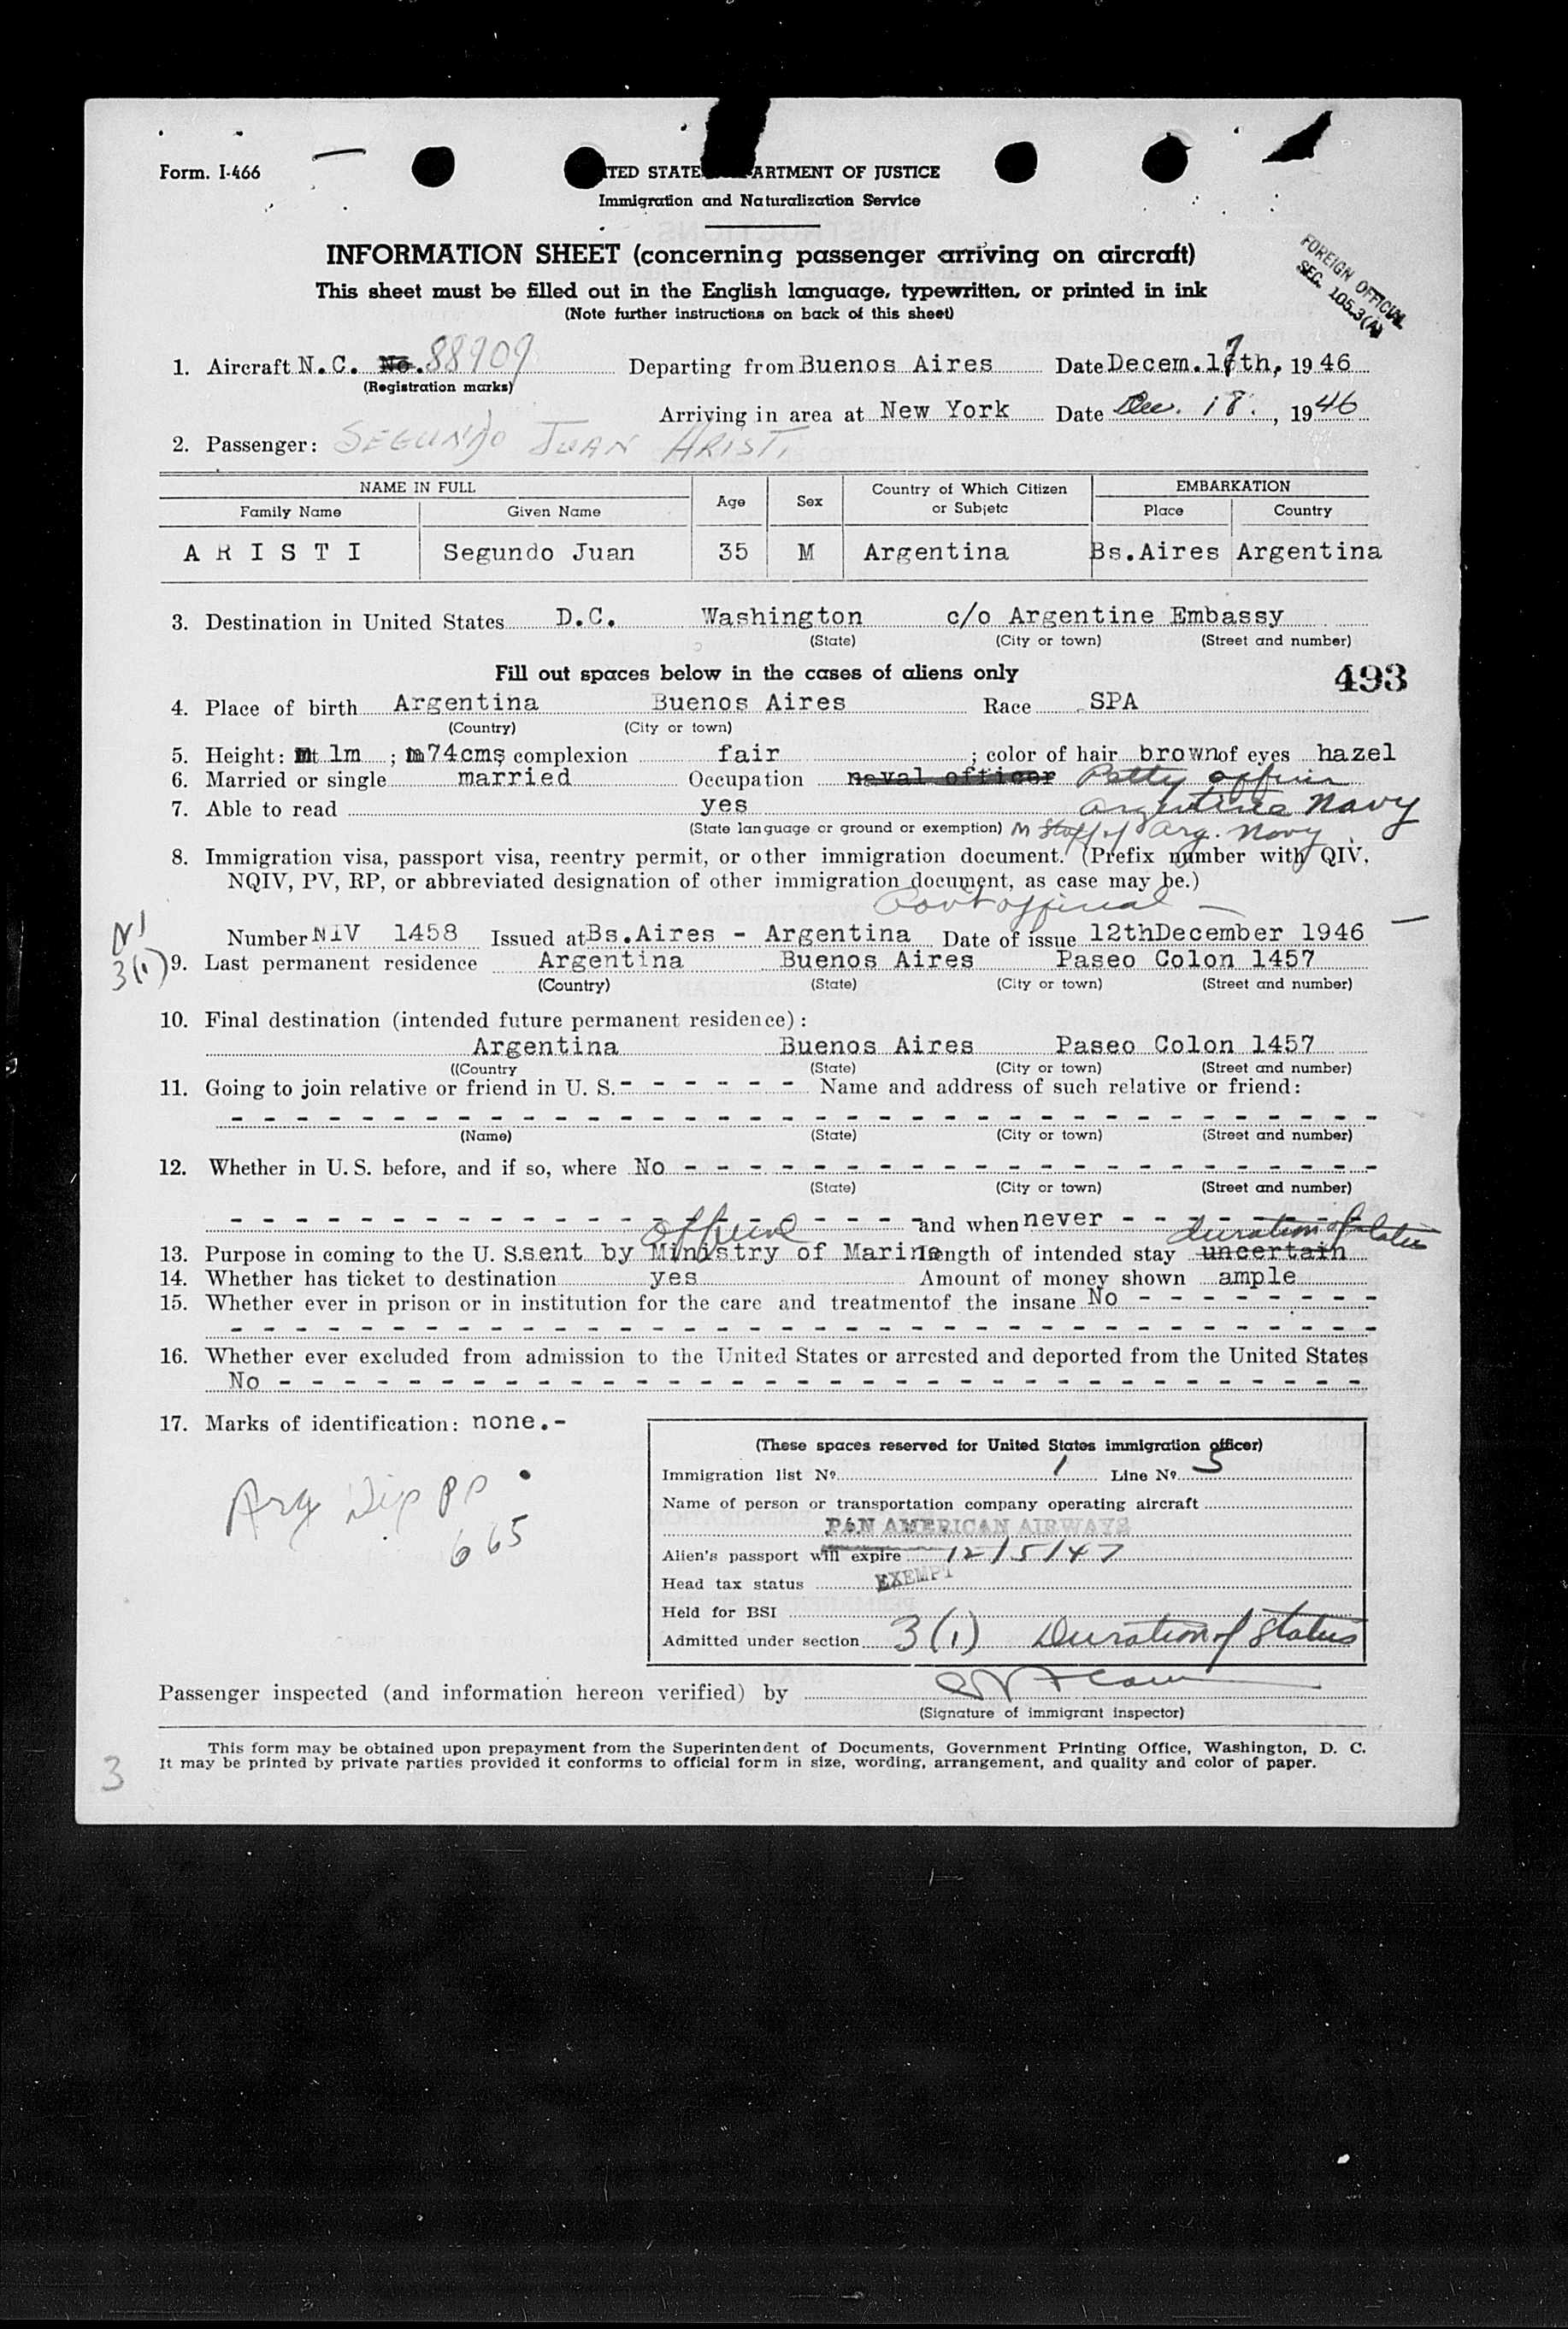 Form. I-466
ITED STATE ARTMENT OF JUSTICE
Immigration and Naturalization Service
INFORMATION SHEET (concerning passenger arriving on aircraft)
This sheet must be filled out in the English language, typewritten, or printed in ink
(Note further instructions on back of this sheet)
FOREIGN OFFICIAL
SEC. 105.3(A)
1. Aircraft N.C. No. 88909 Departing from Buenos Aires Date Decem.17th, 1946
(Registration marks)
Arriving in area at New York Date Dec. 18, 1946
2. Passenger: SEGUNDO JUAN ARISTI
NAME IN FULL Age Sex Country of Which Citizen or Subjetc EMBARKATION
Family Name Given Name Place Country
A R I S T I Segundo Juan 35 M Argentina Bs.Aires Argentina
3. Destination in United States D.C. Washington c/o Argentine Embassy
(State) (City or town) (Street and number)
Fill out spaces below in the cases of aliens only 493
4. Place of birth Argentina Buenos Aires Race SPA
(Country) (City or town)
5. Height: 1m ; 74cms complexion fair ; color of hair brown of eyes hazel
6. Married or single married Occupation naval officer Petty officer
7. Able to read yes Argentine Navy
(State language or ground or exemption) M Staff of Arg. Navy
8. Immigration visa, passport visa, reentry permit, or other immigration document. (Prefix number with QIV,
NQIV, PV, RP, or abbreviated designation of other immigration document, as case may be.)
Govt official -
Number NIV 1458 Issued at Bs.Aires - Argentina Date of issue 12thDecember 1946
3(1) 9. Last permanent residence Argentina Buenos Aires Paseo Colon 1457
(Country) (State) (City or town) (Street and number)
10. Final destination (intended future permanent residence):
Argentina Buenos Aires Paseo Colon 1457
((Country (State) (City or town) (Street and number)
11. Going to join relative or friend in U. S. - - - - - - Name and address of such relative or friend:
(Name) (State) (City or town) (Street and number)
12. Whether in U. S. before, and if so, where No - - - - - - - - - - - - - - - - - - - - - -
(State) (City or town) (Street and number)
and when never - - - - - - -
official duration of status
13. Purpose in coming to the U. S. sent by Ministry of Marine Length of intended stay uncertain
14. Whether has ticket to destination yes Amount of money shown ample
15. Whether ever in prison or in institution for the care and treatmentof the insane No - - - - - - - -
16. Whether ever excluded from admission to the United States or arrested and deported from the United States
No - - - - - - - - - - - - - - - - - - - - - - - - - - - - - - - - - -
17. Marks of identification: none.-
Arg Dip PP
665
(These spaces reserved for United States immigration officer)
Immigration list Nº 1 Line Nº 5
Name of person or transportation company operating aircraft
PAN AMERICAN AIRWAYS
Alien's passport will expire 12/5/47
Head tax status EXEMPT
Held for BSI
Admitted under section 3(1) Duration of Status
Passenger inspected (and information hereon verified) by
(Signature of immigrant inspector)
This form may be obtained upon prepayment from the Superintendent of Documents, Government Printing Office, Washington, D. C.
It may be printed by private parties provided it conforms to official form in size, wording, arrangement, and quality and color of paper.
3